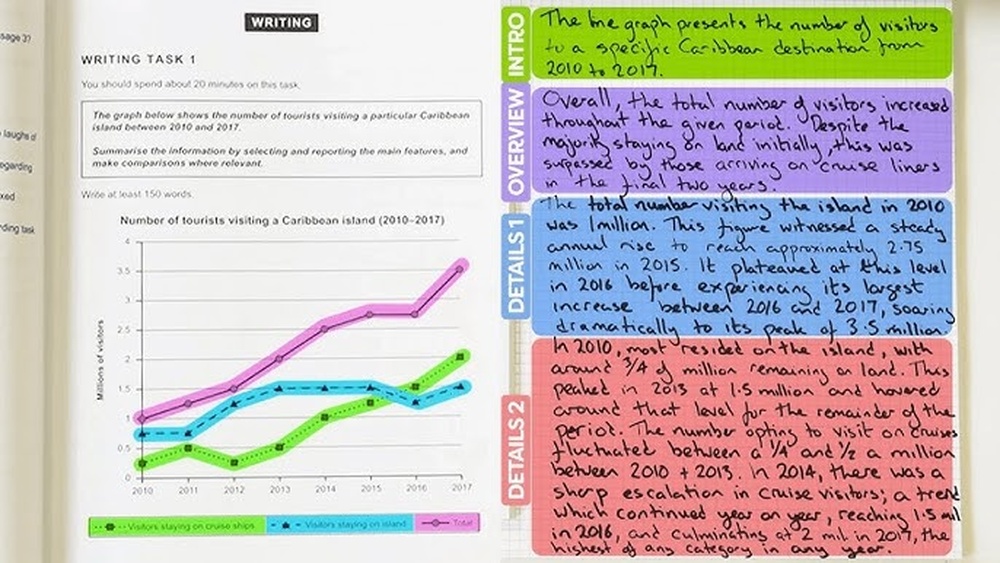 sage 3?
laughs of
egarding
xed
ding task
WRITING
WRITING TASK 1
You should spend about 20 minutes on this task.
The graph below shows the number of tourists visiting a particular Caribbean
island between 2010 and 2017.
Summarise the information by selecting and reporting the main features, and
make comparisons where relevant.
Write at least 150 words.
Number of tourists visiting a Caribbean island (2010–2017)
Millions of visitors
4
3.5
3
2.5
2
1.5
1
0.5
0
2010 2011 2012 2013 2014 2015 2016 2017
Visitors staying on cruise ships Visitors staying on island Total
INTRO
The line graph presents the number of visitors
to a specific Caribbean destination from
2010 to 2017.
OVERVIEW
Overall, the total number of visitors increased
throughout the given period. Despite the
majority staying on land initially, this was
surpassed by those arriving on cruise liners
in the final two years.
DETAILS 1
The total number visiting the island in 2010
was 1million. This figure witnessed a steady
annual rise to reach approximately 2.75
million in 2015. It plateaued at this level
in 2016 before experiencing its largest
increase between 2016 and 2017, soaring
dramatically to its peak of 3.5 million.
DETAILS 2
In 2010, most resided on the island, with
around 3/4 of million remaining on land. This
peaked in 2013 at 1.5 million and hovered
around that level for the remainder of the
period. The number opting to visit on cruises
fluctuated between a 1/4 and 1/2 a million
between 2010 + 2013. In 2014, there was a
sharp escalation in cruise visitors; a trend
which continued year on year, reaching 1.5 mil
in 2016, and culminating at 2 mil in 2017, the
highest of any category in any year.